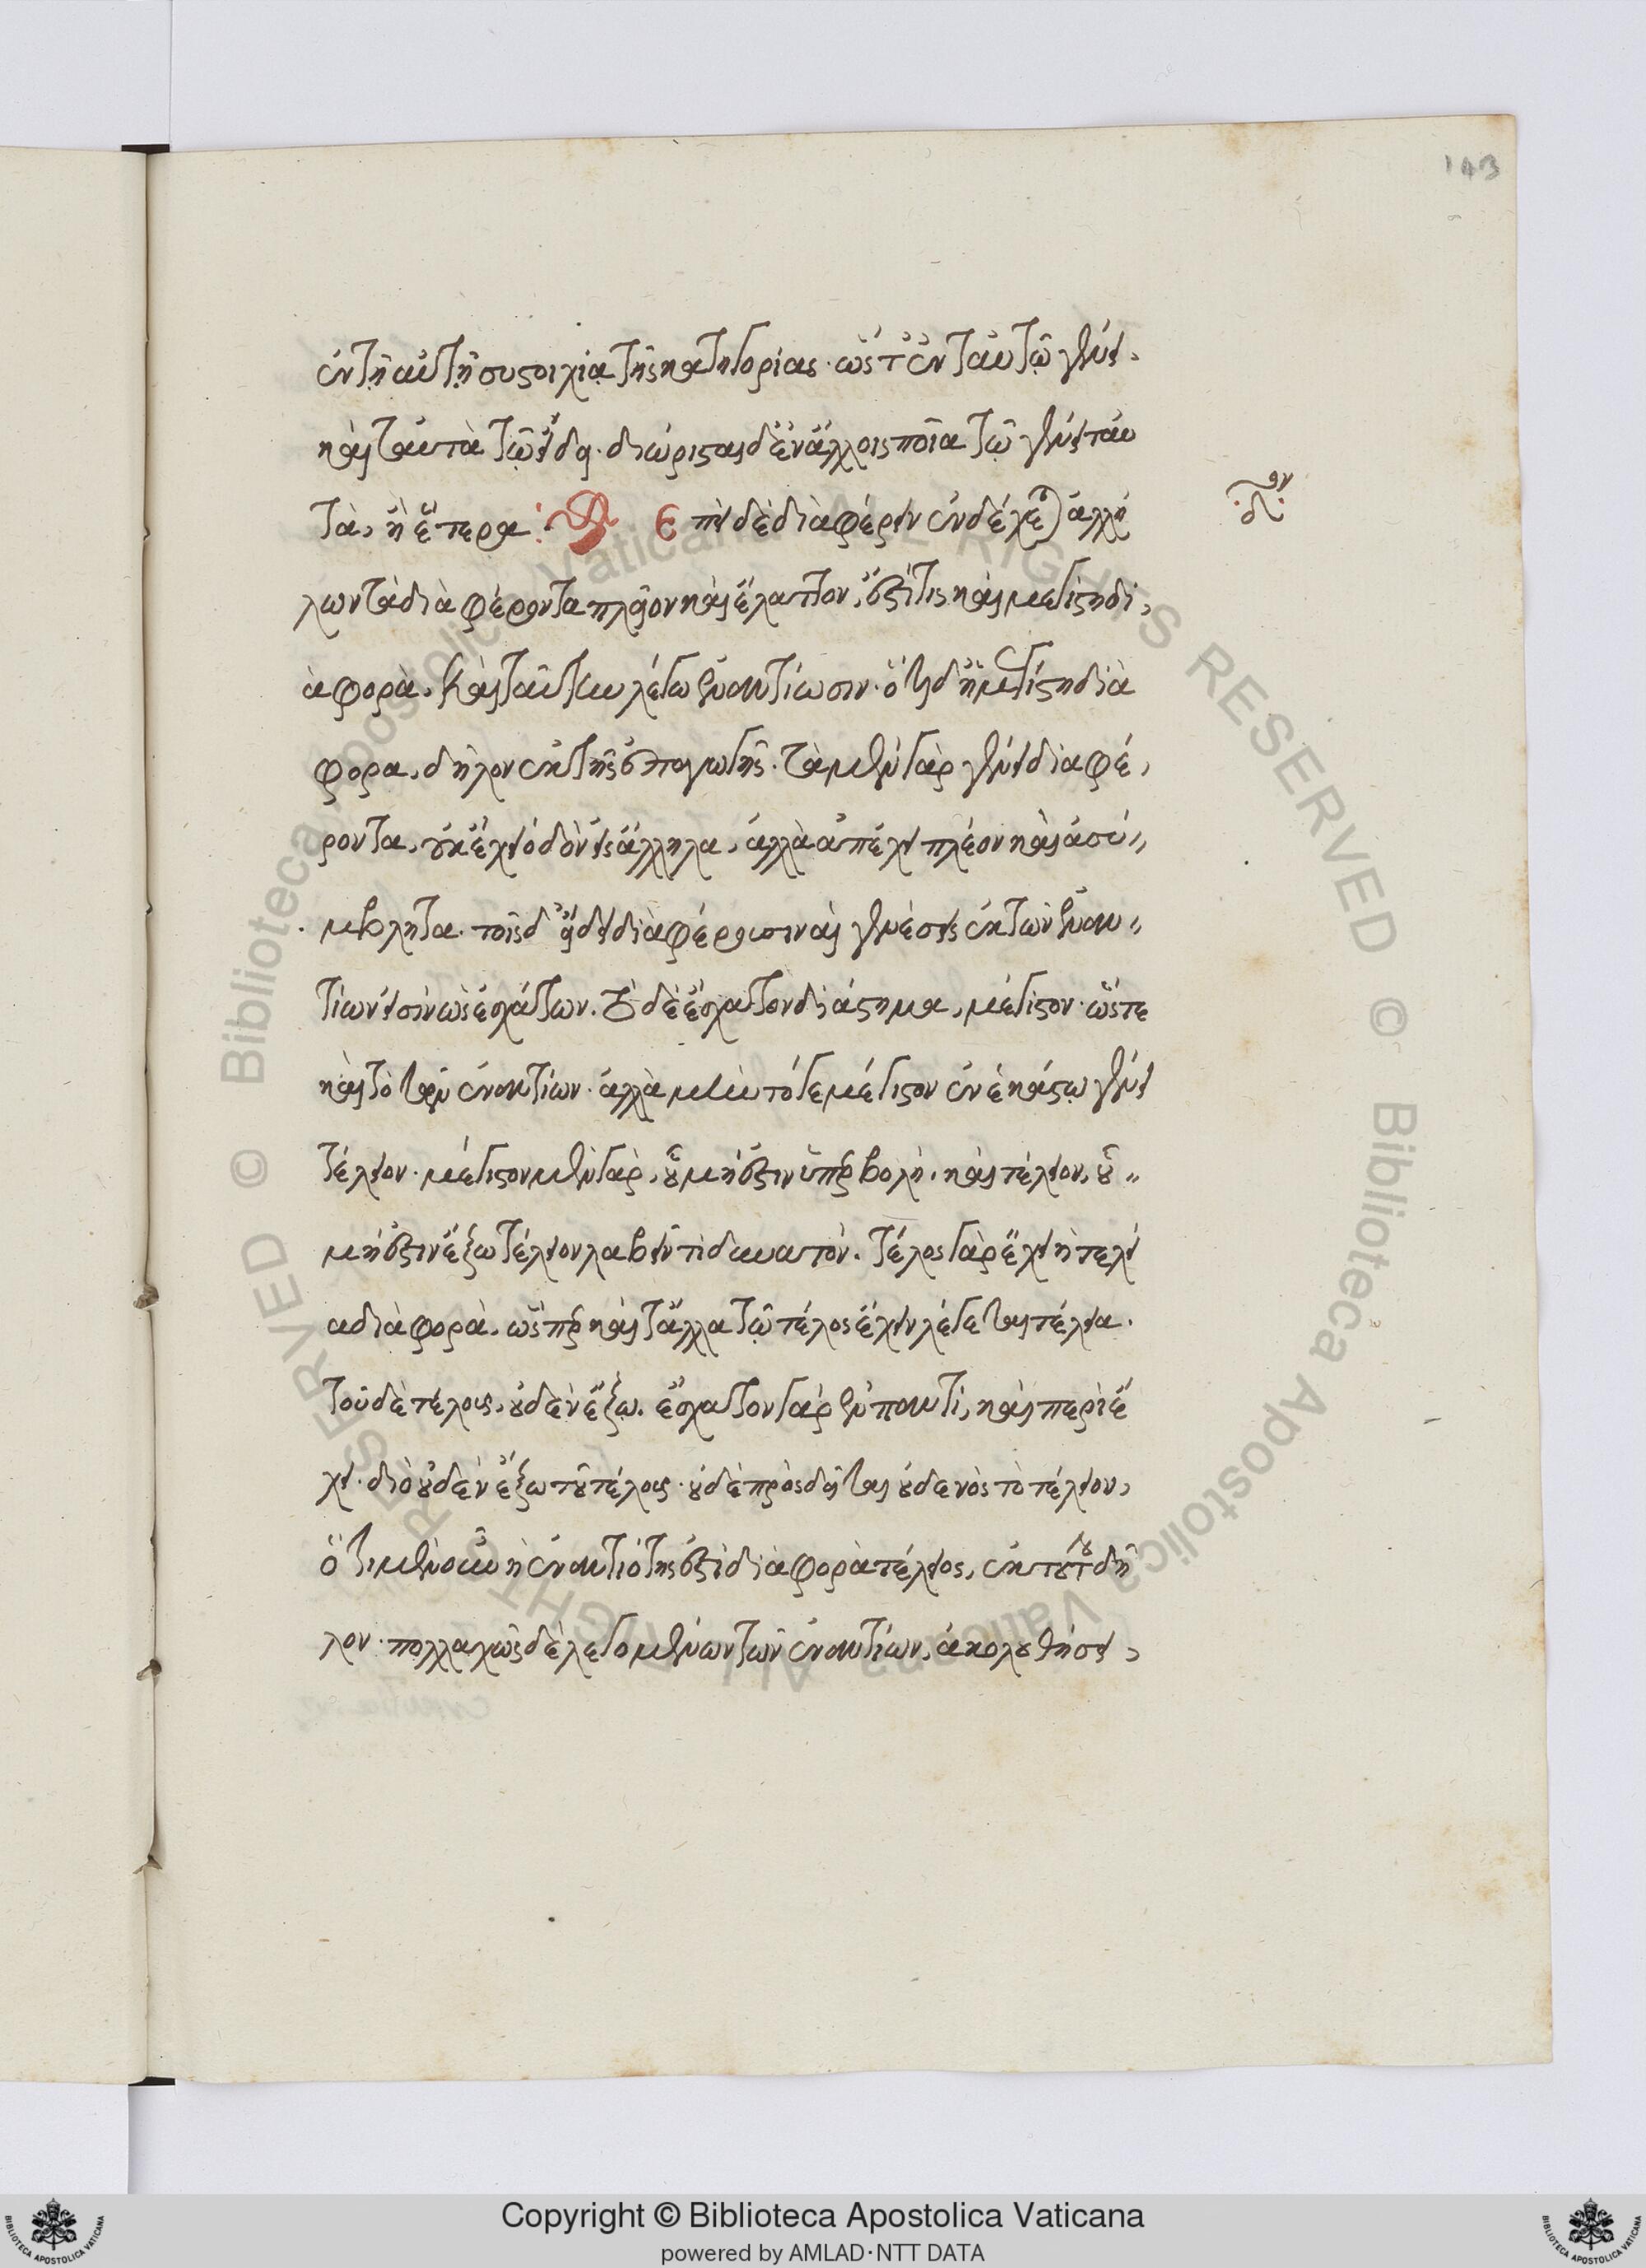 143
ἐν τῇ αὐτῇ συστοιχίᾳ τῆς κατηγορίας. ὥστ' ἐν ταὐτῷ γένει.
καὶ ταὐτὰ τῷ εἴδει. διώρισται δ' ἐν ἄλλοις ποῖα τῷ γένει ταυ
τὰ, ἢ ἕτερα: Ἐπεὶ δὲ διαφέρειν ἐνδέχεται ἀλλή
λων τὰ διαφέροντα πλεῖον καὶ ἔλαττον, ἔστί τις καὶ μεγίστη δι,
αφορὰ. καὶ ταύτην λέγω ἐναντίωσιν. ὅτι δ' ἡ μεγίστη δια
φορα, δῆλον ἐκ τῆς ἐπαγωγῆς. τὰ μὲν γὰρ γένει διαφέ,
ροντα, οὐκ ἔχει ὁδὸν εἰς ἄλληλα, ἀλλὰ ἀπέχει πλέον καὶ ἀσύ〃
μβλητα. τοῖς δ' εἴδει διαφέρουσιν αἱ γενέσεις ἐκ τῶν ἐναν〃
τίων εἰσὶν ὡς ἐσχάτων. Τὸ δὲ ἔσχατον διάστημα, μέγιστον. ὥστε
καὶ τὸ τῶν ἐναντίων. ἀλλὰ μὴν τό γε μέγιστον ἐν ἑκάστῳ γένει
τέλειον. μέγιστον μὲν γὰρ, οὗ μὴ ἔστιν ὑπερβολὴ, καὶ τέλειον, οὗ〃
μὴ ἔστιν ἔξω τέλειον λαβεῖν τὶ δυνατὸν. τέλος γὰρ ἔχει ἡ τελεί
α διαφορὰ. ὥσπερ καὶ τἄλλα τῷ τέλος ἔχειν λέγεται τέλεια.
τοῦ δὲ τέλους, οὐδὲν ἔξω. ἔσχατον γὰρ ἐν παντὶ, καὶ περιέ
χει. διὸ οὐδὲν ἔξω τοῦ τέλους. οὐδὲ προσδεῖται οὐδενὸς τὸ τέλειον,
ὅτι μὲν οὖν ἡ ἐναντιότης ἐστὶ διαφορὰ τέλειος, ἐκ τούτου δῆ
λον. πολλαχῶς δὲ λεγομένων τῶν ἐναντίων, ἀκολουθήσει,
Copyright © Biblioteca Apostolica Vaticana
powered by AMLAD·NTT DATA